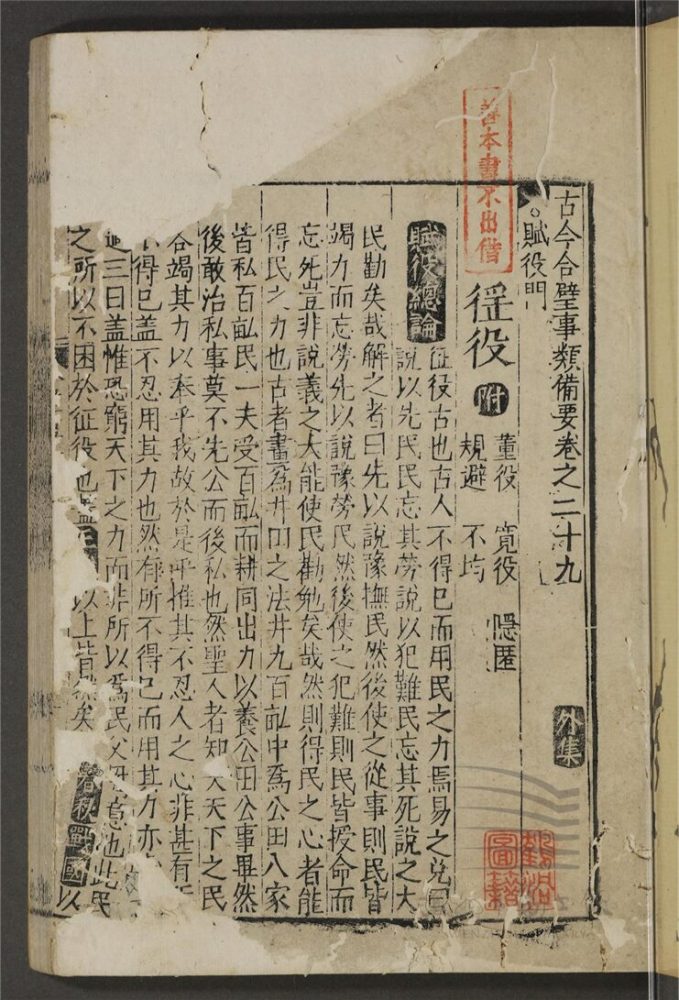 古今合璧事類備要卷之二十九 外集
賦役門
善本書不出借
徭役 附 董役 寬役 隱匿
規避 不均
賦役總論 征役古也古人不得已而用民之力焉易之兌曰
說以先民民忘其勞說以犯難民忘其死說之大
民勸矣哉解之者曰先以說豫撫民然後使之從事則民皆
竭力而忘勞先以說豫勞民然後使之犯難則民皆授命而
忘死豈非說義之大能使民勸勉矣哉然則得民之心者能
得民之力也古者畫為井田之法井九百畝中為公田八家
皆私百畝民一夫受百畝而耕同出力以養公田公事畢然
後敢治私事莫不先公而後私也然聖人者知天下之民
各竭其力以奉乎我故於是乎推其不忍人之心非甚有
得已盖不忍用其力也然有所不得已而用其力亦
三日盖惟恐窮天下之力而非所以為民父母意也此民
之所以不困於征役也 以上皆然矣 春秋戰國 以